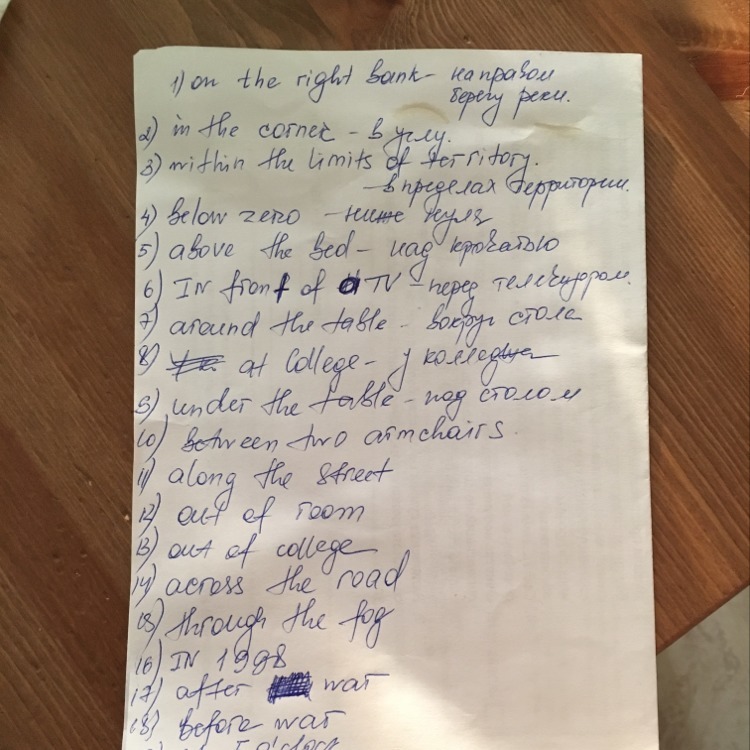 1) on the right bank - на правом
берегу реки.
2) in the corner - в углу.
3) within the limits of territory.
- в пределах территории.
4) below zero - ниже нуля
5) above the bed - над кроватью
6) IN front of a TV - перед телевизором.
7) around the table - вокруг стола
8) at College - у колледжа
9) under the table - под столом
10) between two armchairs.
11) along the street
12) out of room
13) out of college
14) across the road
15) through the fog
16) IN 1998
17) after war
18) before war
o'clock